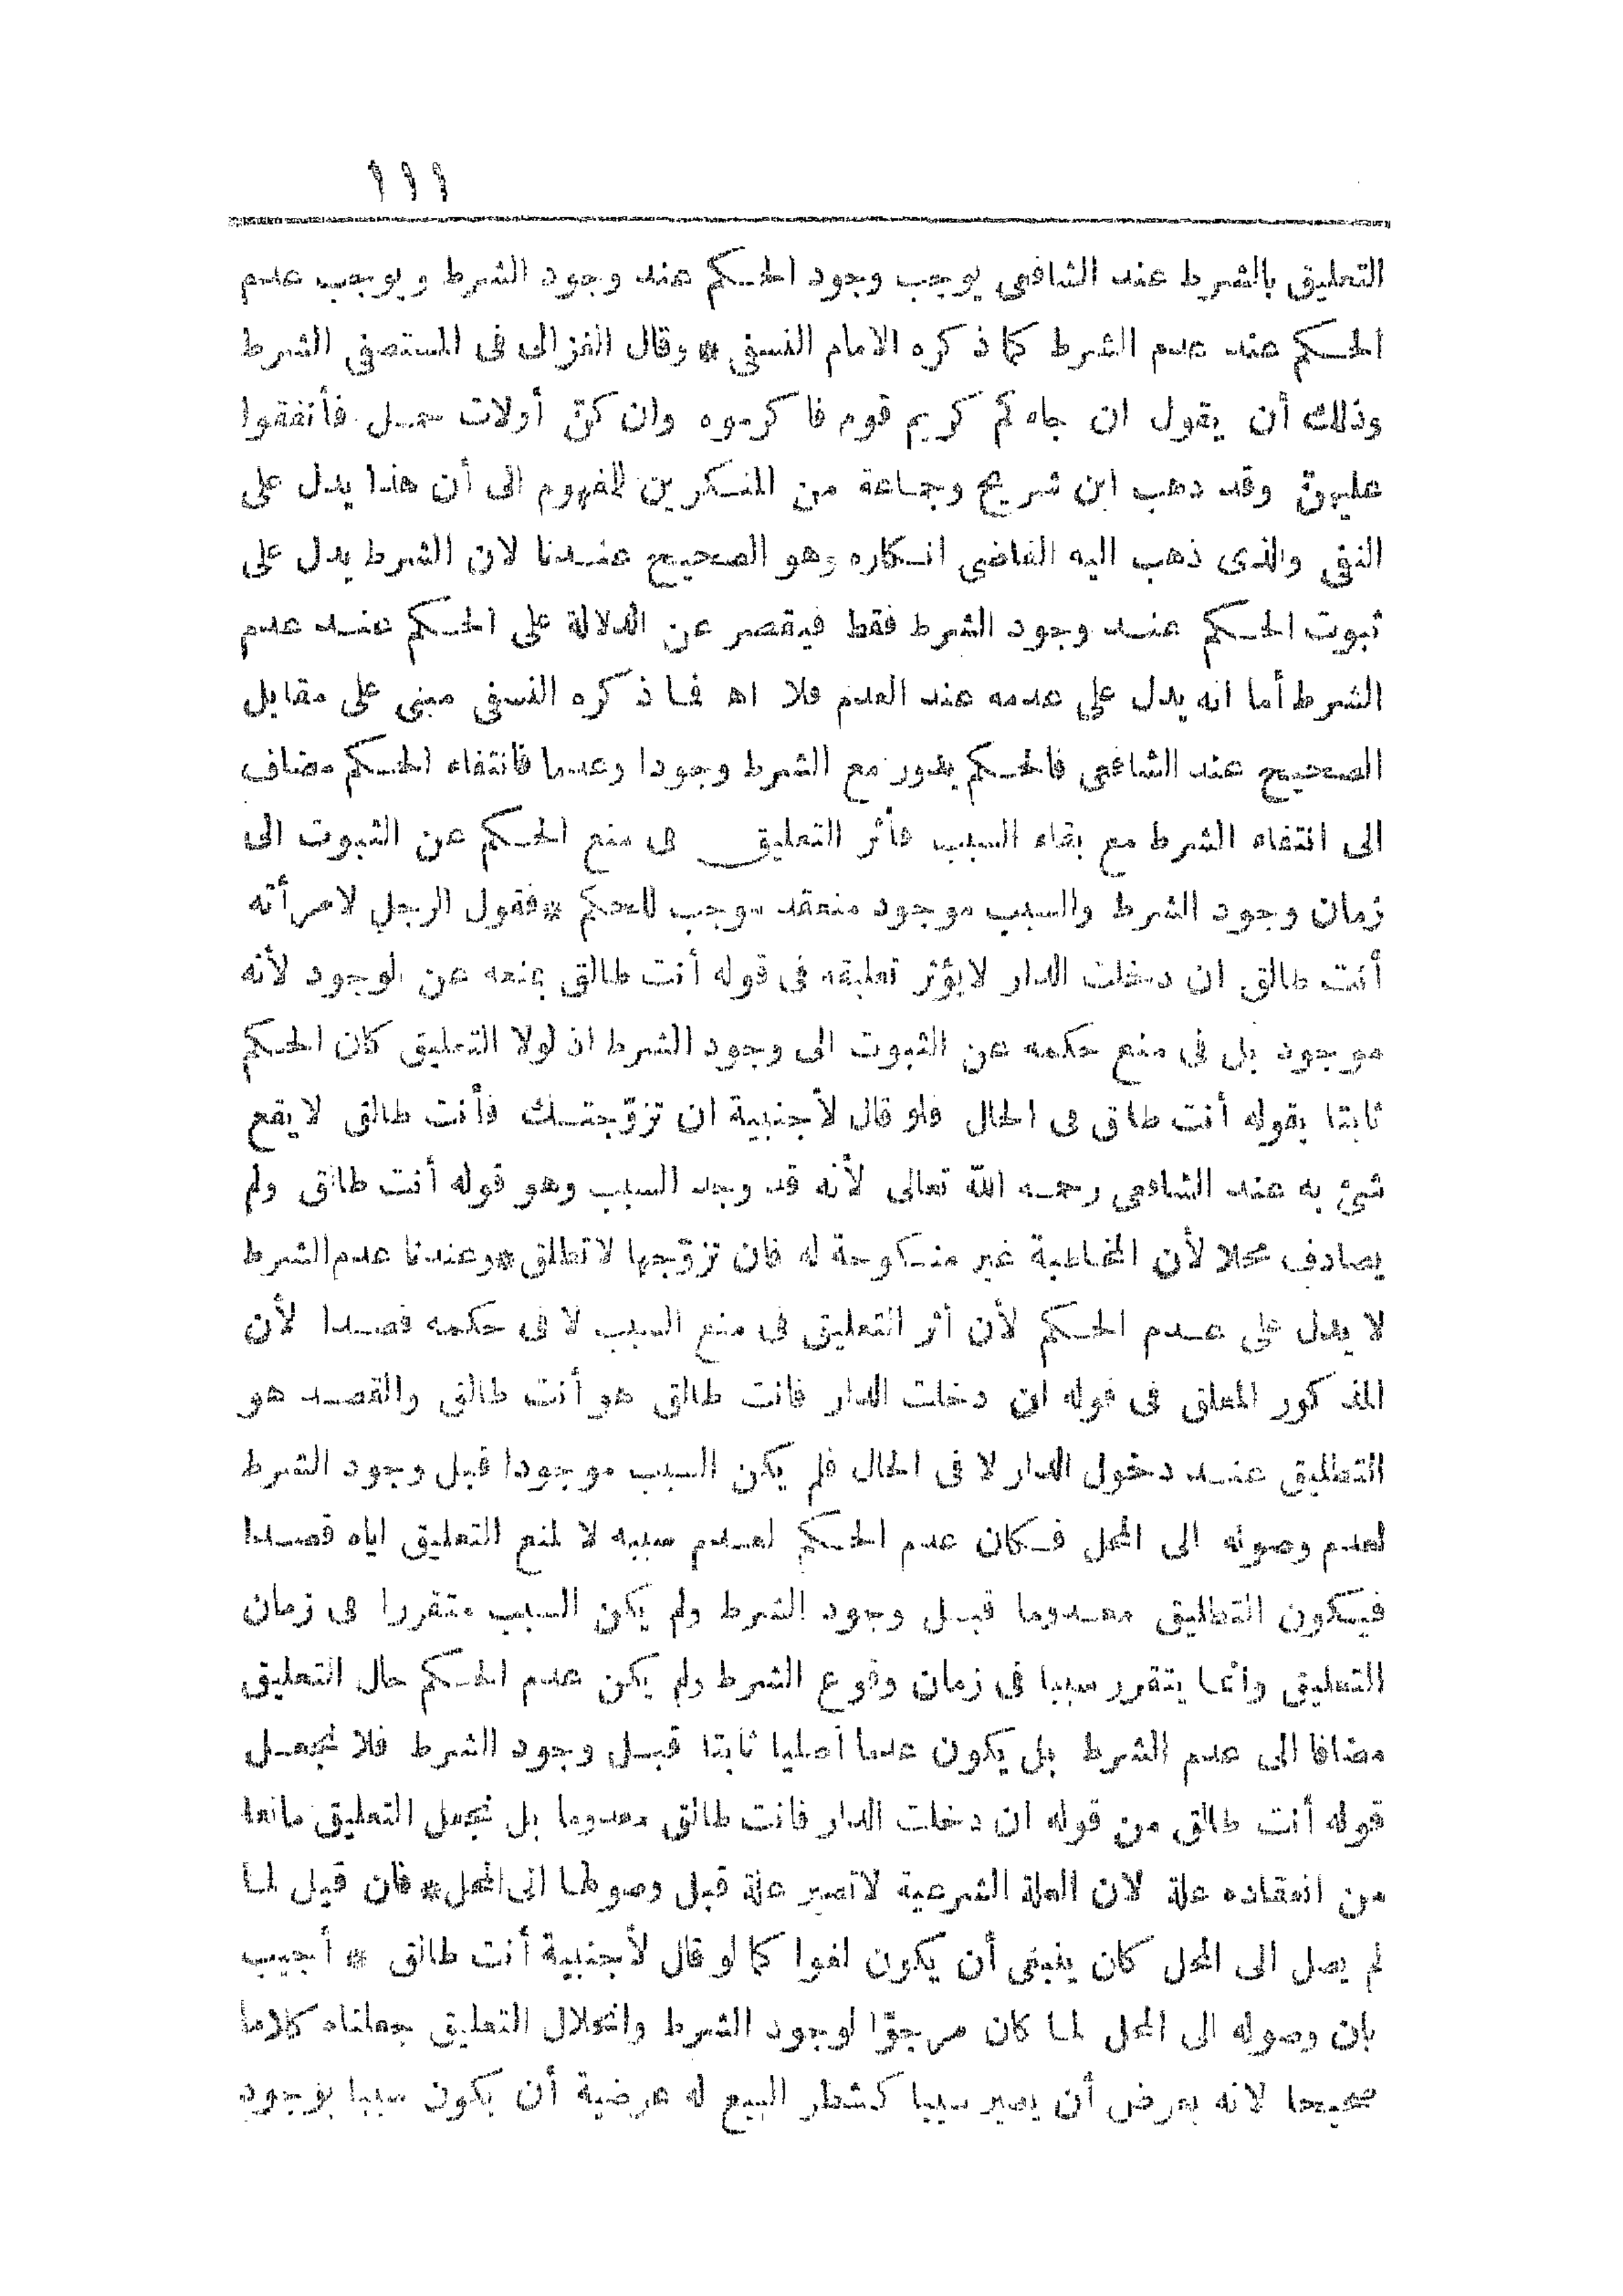 ١١١
التعليق بالشرط عند الشافعى يوجب وجود الحكم عند وجود الشرط ويوجب عدم
الحكم عند عدم الشرط كما ذكره الامام النسفى * وقال الغزالى فى المستصفى الشرط
وذلك أن يقول ان جاءكم كريم قوم فاكرموه وان كنّ أولات حمل فأنفقوا
عليهنّ وقد ذهب ابن شريح وجماعة من المنكرين للمفهوم الى أن هذا يدل على
النفى والذى ذهب اليه القاضى انكاره وهو الصحيح عندنا لان الشرط يدل على
ثبوت الحكم عند وجود الشرط فقط فيقصر عن الدلالة على الحكم عند عدم
الشرط أما انه يدل على عدمه عند العدم فلا اه فما ذكره النسفى مبنى على مقابل
الصحيح عند الشافعى فالحكم يدور مع الشرط وجودا وعدما فانتفاء الحكم مضاف
الى انتفاء الشرط مع بقاء السبب فأثر التعليق فى منع الحكم عن الثبوت الى
زمان وجود الشرط والسبب موجود منعقد موجب للحكم * فقول الرجل لامرأته
أنت طالق ان دخلت الدار لا يؤثر تعليقه فى قوله أنت طالق بمنعه عن الوجود لأنه
موجود بل فى منع حكمه عن الثبوت الى وجود الشرط اذ لولا التعليق كان الحكم
ثابتا بقوله أنت طالق فى الحال فلو قال لأجنبية ان تزوّجتك فأنت طالق لا يقع
شئ به عند الشافعى رحمه اللّه تعالى لأنه قد وجد السبب وهو قوله أنت طالق ولم
يصادف محلا لأن المخاطبة غير منكوحة له فان تزوّجها لا تطلق * وعندنا عدم الشرط
لا يدل على عدم الحكم لأن أثر التعليق فى منع السبب لا فى حكمه قصدا لأن
المذكور المعلق فى قوله ان دخلت الدار فانت طالق هو أنت طالق والقصد هو
التطليق عند دخول الدار لا فى الحال فلم يكن السبب موجودا قبل وجود الشرط
لعدم وصوله الى المحل فكان عدم الحكم لعدم سببه لا لمنع التعليق اياه قصدا
فيكون التطليق معدوما قبل وجود الشرط ولم يكن السبب متقررا فى زمان
التعليق وانما يتقرر سببا فى زمان وقوع الشرط ولم يكن عدم الحكم حال التعليق
مضافا الى عدم الشرط بل يكون عدما أصليا ثابتا قبل وجود الشرط فلا نجعل
قوله أنت طالق من قوله ان دخلت الدار فانت طالق معدوما بل نجعل التعليق مانعا
من انعقاده علة لان العلة الشرعية لا تصير علة قبل وصولها الى المحل * فان قيل لما
لم يصل الى المحل كان ينبغى أن يكون لغوا كما لو قال لأجنبية أنت طالق * أجيب
بان وصوله الى المحل لما كان مرجوّا لوجود الشرط وانحلال التعليق جعلناه كلاما
صحيحا لانه بعرض أن يصير سببا كشطر البيع له عرضية أن يكون سببا بوجود